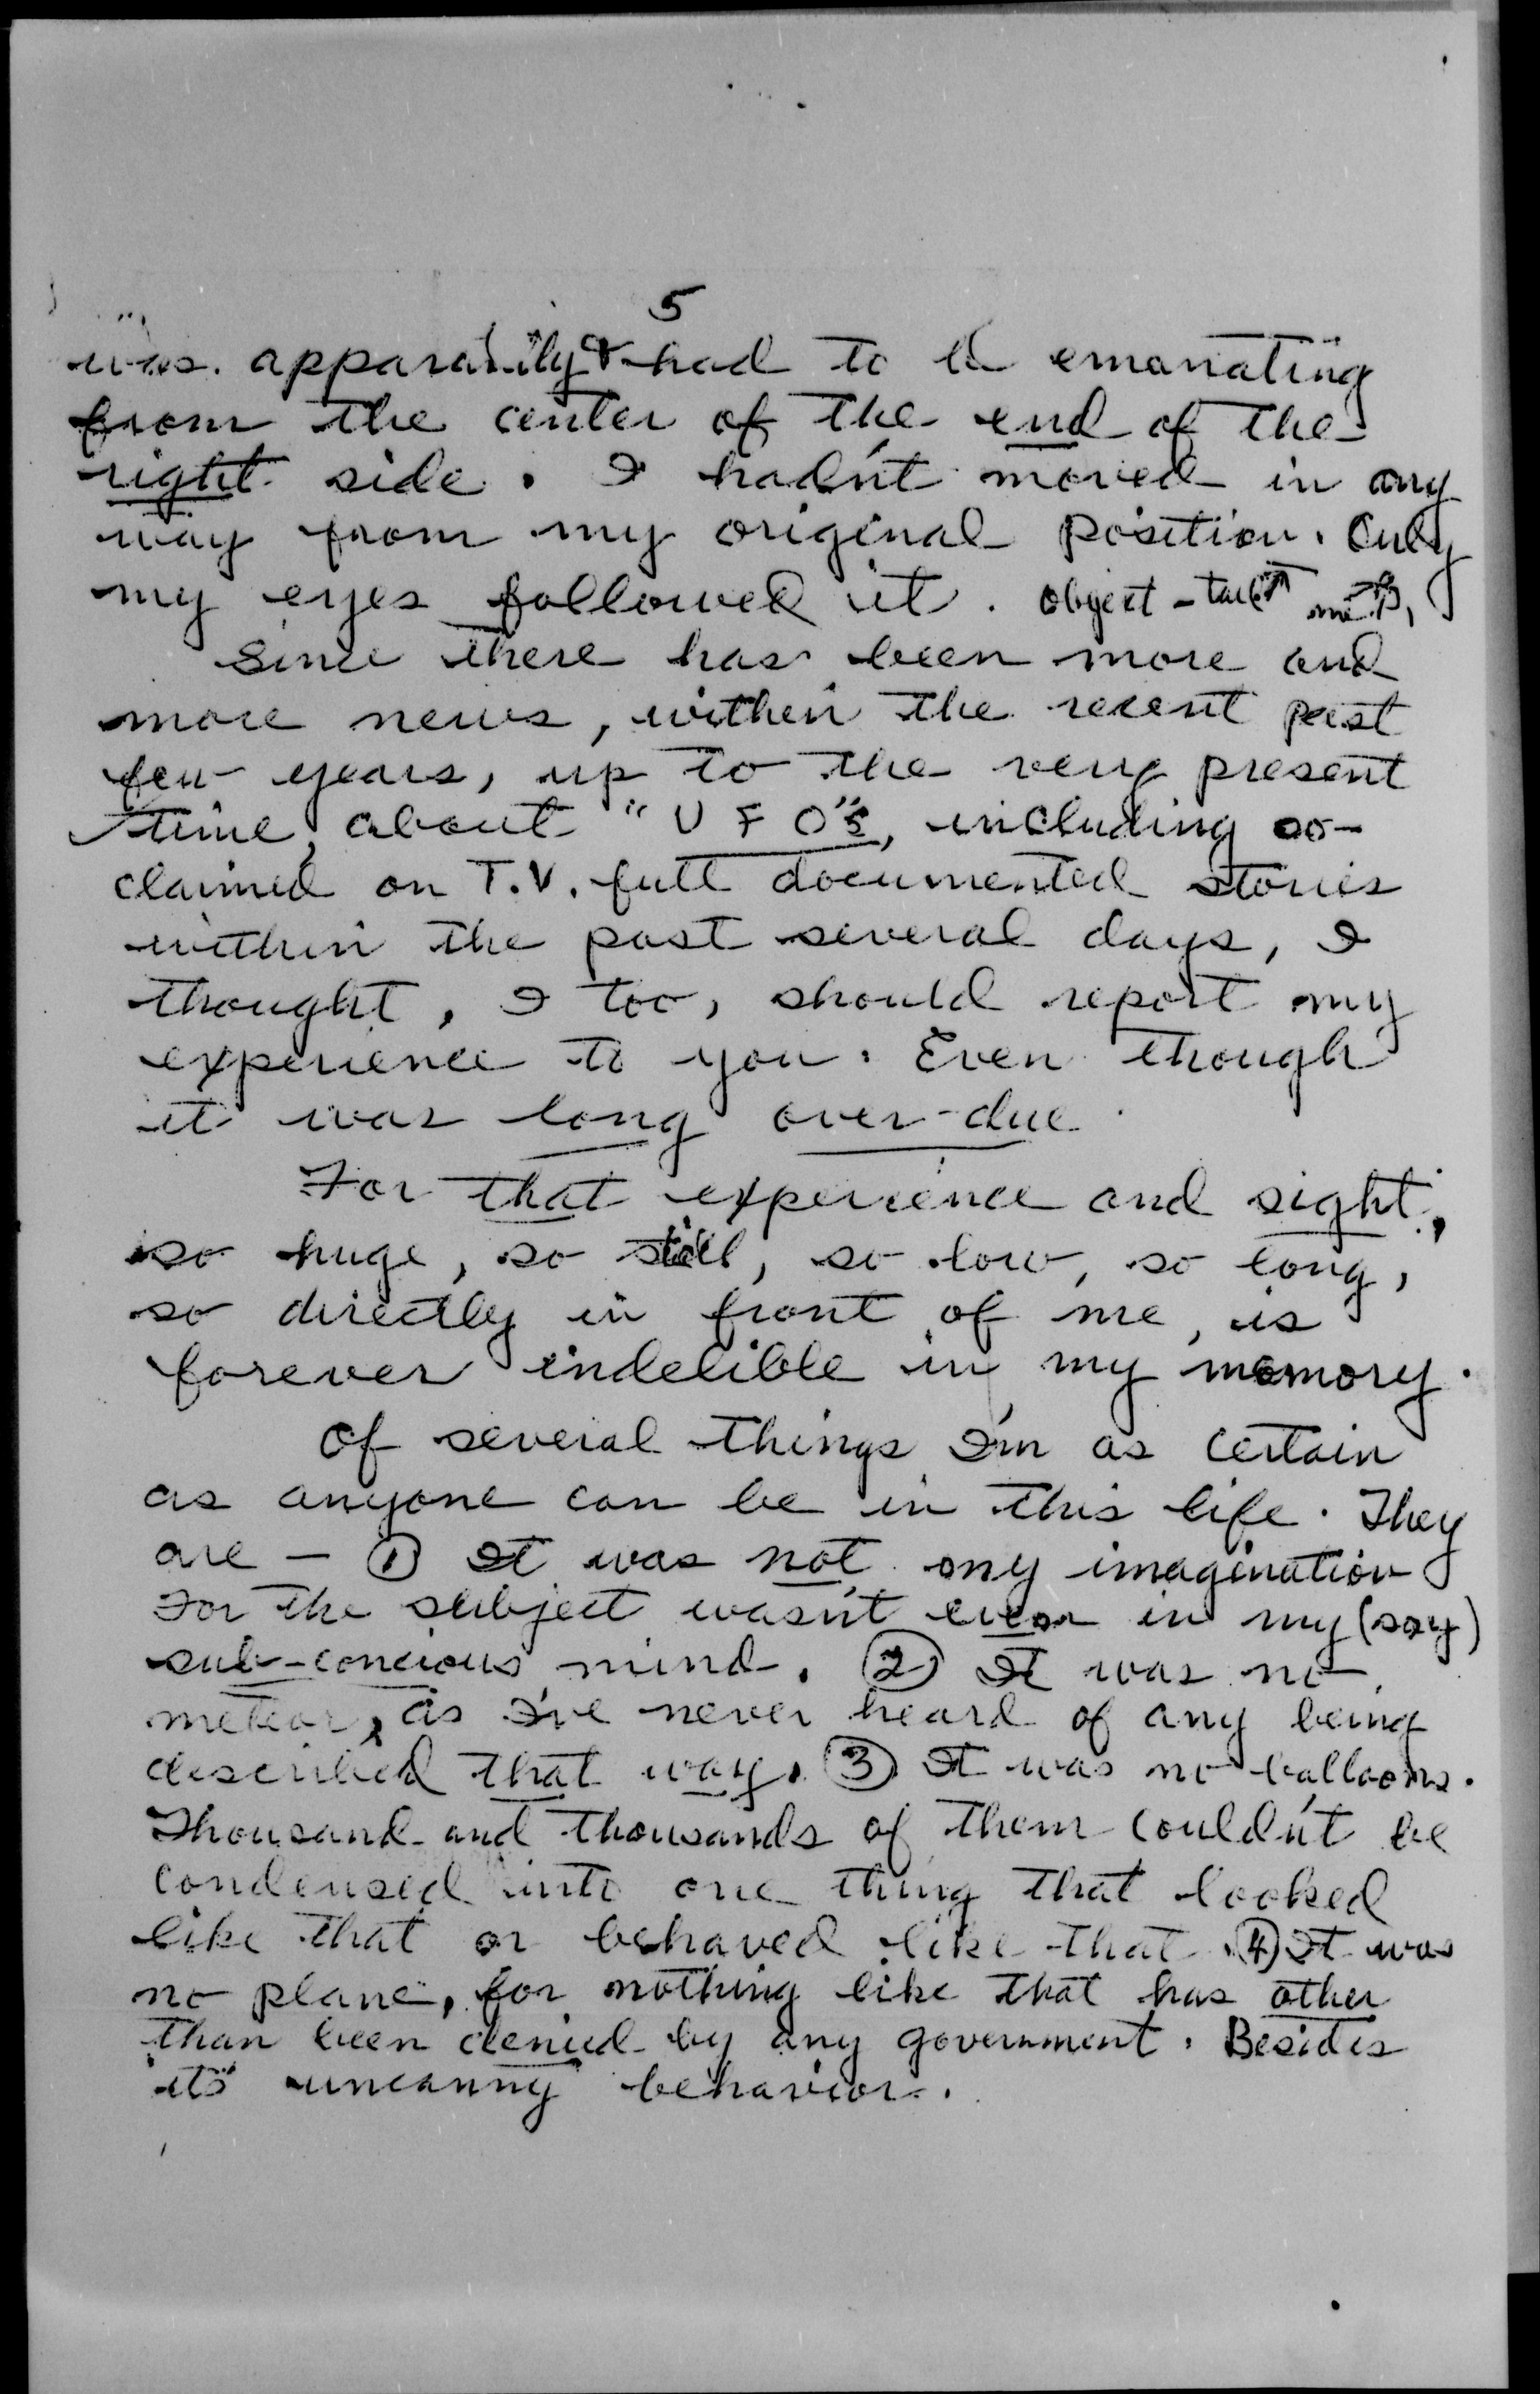 5
was apparantly & had to be emanating
from the center of the end of the
right side. I hadn't moved in any
way from my original position. Only
my eyes followed it. Object - tail me
Since there has been more and
more news, within the recent past
few years, up to the very present
time, about "U F O"s, including so-
claimed on T.V. full documented stories
within the past several days, I
thought, I too, should report my
experience to you. Even though
it was long over-due.
For that experience and sight,
so huge, so still, so low, so long,
so directly in front of me, is
forever indelible in my memory.
Of several things I'm as certain
as anyone can be in this life. They
are - ① It was not my imagination
For the subject wasn't even in my (say)
sub-concious mind. ② It was no
meteor, as I've never heard of any being
described that way. ③ It was no balloons.
Thousand and thousands of them couldn't be
condensed into one thing that looked
like that or behaved like that. ④ It was
no plane, for nothing like that has other
than been denied by any government. Besides
it's uncanny behavior.